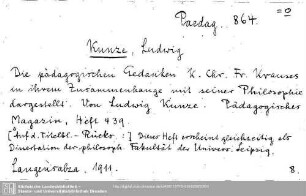 Paedag. 864.
Kunze, Ludwig
Die pädagogischen Gedanken K. Chr. Fr. Krauses
in ihrem Zusammenhange mit seiner Philosophie
dargestellt. Von Ludwig Kunze. Pädagogisches
Magazin, Heft 439.
[Auf d. Titelbl.-Rücks.:] Dieses Heft erscheint gleichzeitig als
Dissertation der philosoph. Fakultät der Univers. Leipzig.
Langensalza, 1911. 8.